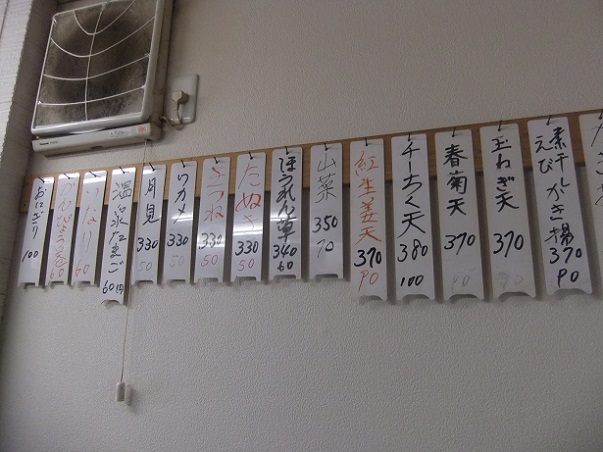 素干しえびかき揚 370 90
玉ねぎ天 370 90
春菊天 370 90
チーちく天 380 100
紅生姜天 370 90
山菜 350 70
ほうれん草 340 60
たぬき 330 50
きつね 330 50
ワカメ 330 50
月見 330 50
温泉たまご 60円
いなり 60
かんぴょう巻 60
おにぎり 100
Panasonic